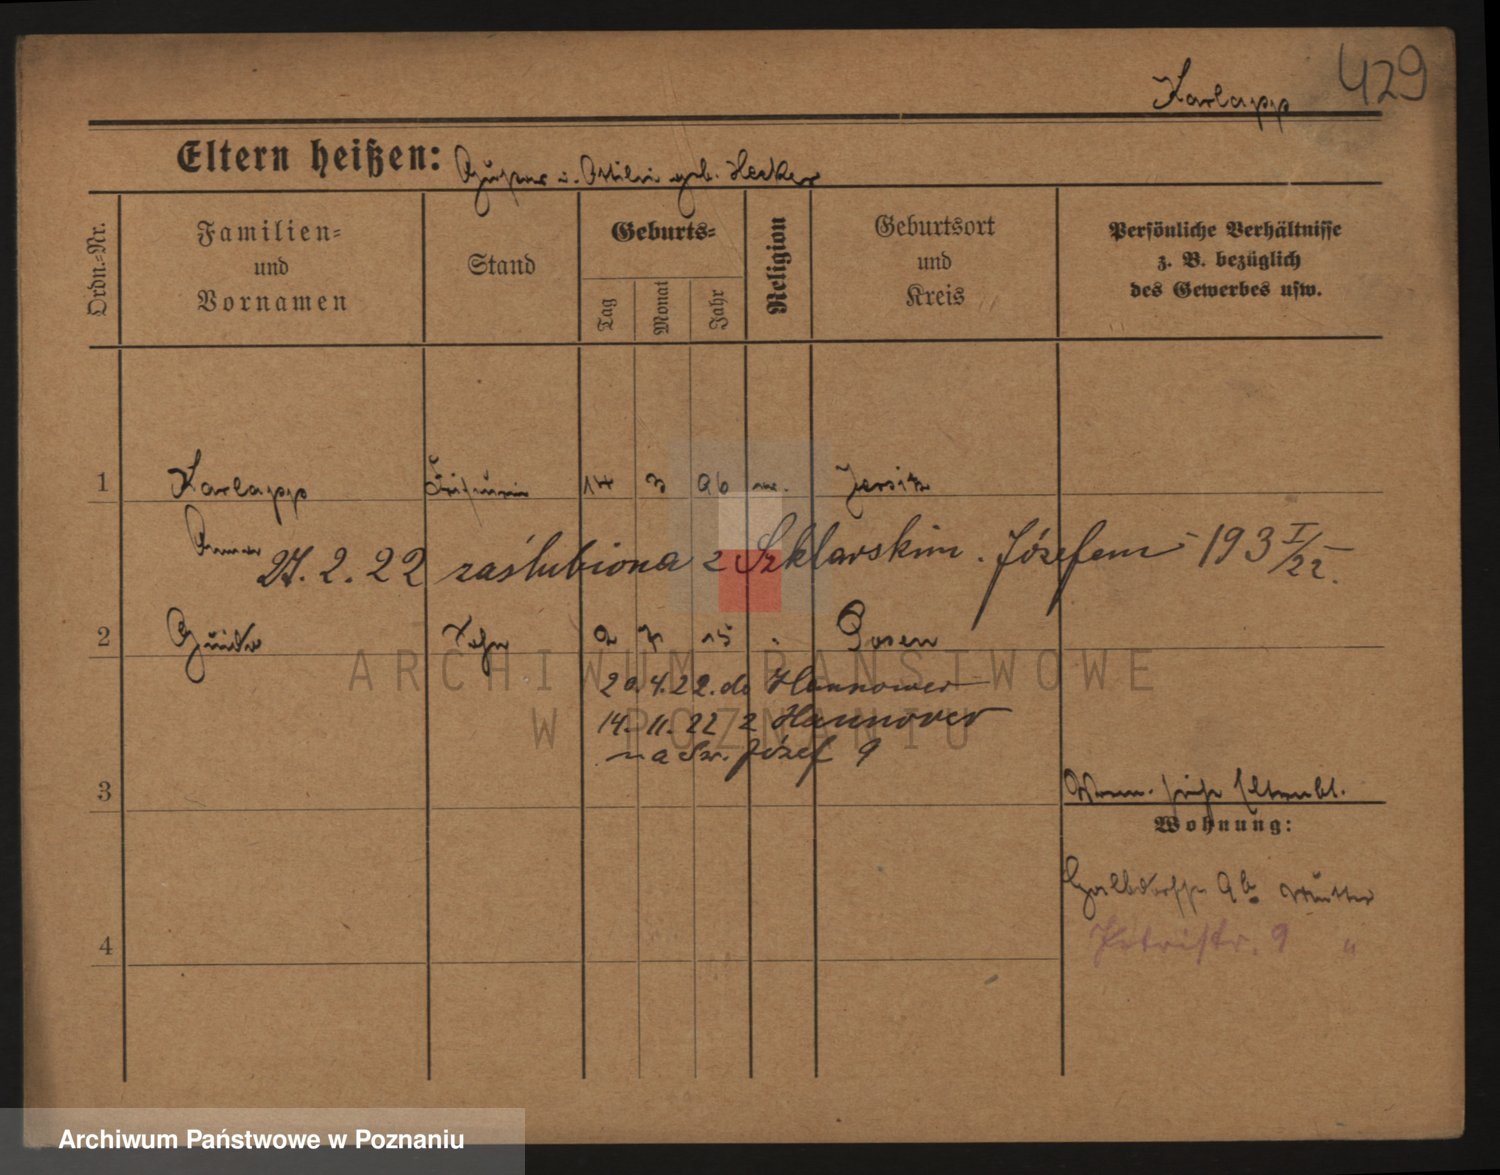 429
Karlapp
Eltern heißen: u. Ottilie geb. Hecker
Ordn.-Nr.
Familien-
und
Vornamen
Stand
Geburts-
Tag
Monat
Jahr
Religion
Geburtsort
und
Kreis
Persönliche Verhältnisse
z. B. bezüglich
des Gewerbes usw.
1 Karlapp 14 3 96 Jersitz
Anna
27. 2. 22 zaślubiona z Szklarskim Józefem - 193 I/22.
2 Guido Sohn 2 7 15 Posen
20.4.22. do Hannower
14. 11. 22 z Hannover
na Św. Józef 9
3
Wohnung:
9 b. Mutter
4 Petristr. 9 "
ARCHIWUM PAŃSTWOWE
W POZNANIU
Archiwum Państwowe w Poznaniu